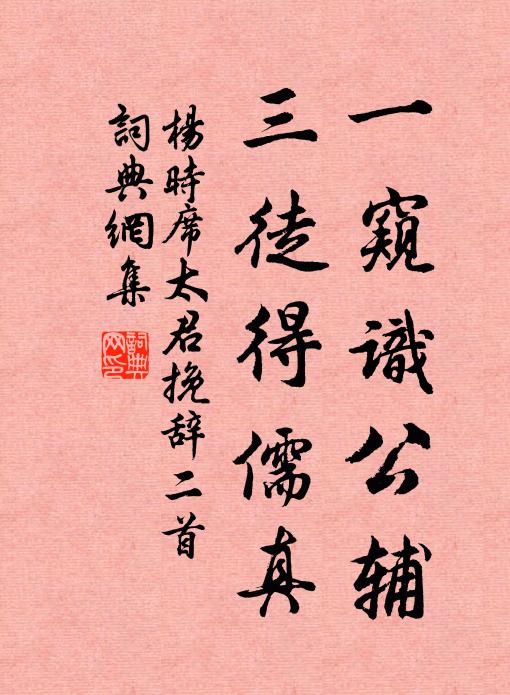 一窥識公辅
三徒得儒真
楊時席太君挽辞二首
詞典網集
詞典網印